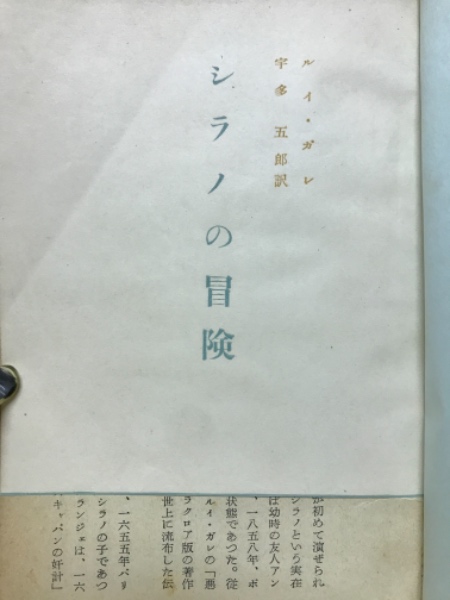 ルイ・ガレ
宇多五郎訳
シラノの冒険
が初めて演ぜられ
シラノという実在
は幼時の友人アン
、一八五八年、ポ
状態であつた。従
ルイ・ガレの「悪
ラクロア版の著作
世上に流布した伝
、一六五五年パリ
シラノの子であつ
ランジェは、一六
キャパンの奸計」